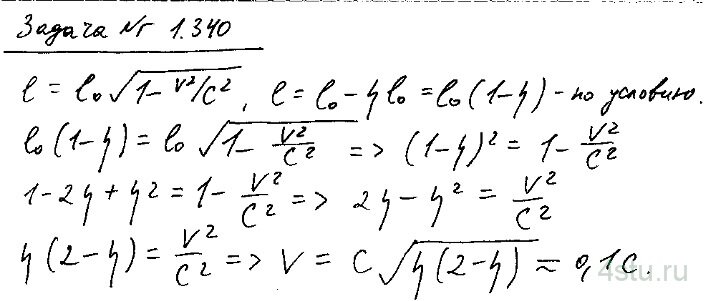 Задача № 1.340
l = l₀√(1 - V²/C²), l = l₀ - ηl₀ = l₀(1-η) - по условию.
l₀(1-η) = l₀√(1 - V²/C²) => (1-η)² = 1 - V²/C²
1-2η+η² = 1 - V²/C² => 2η-η² = V²/C²
η(2-η) = V²/C² => V = C√(η(2-η)) ≈ 0,1C.
4stu.ru